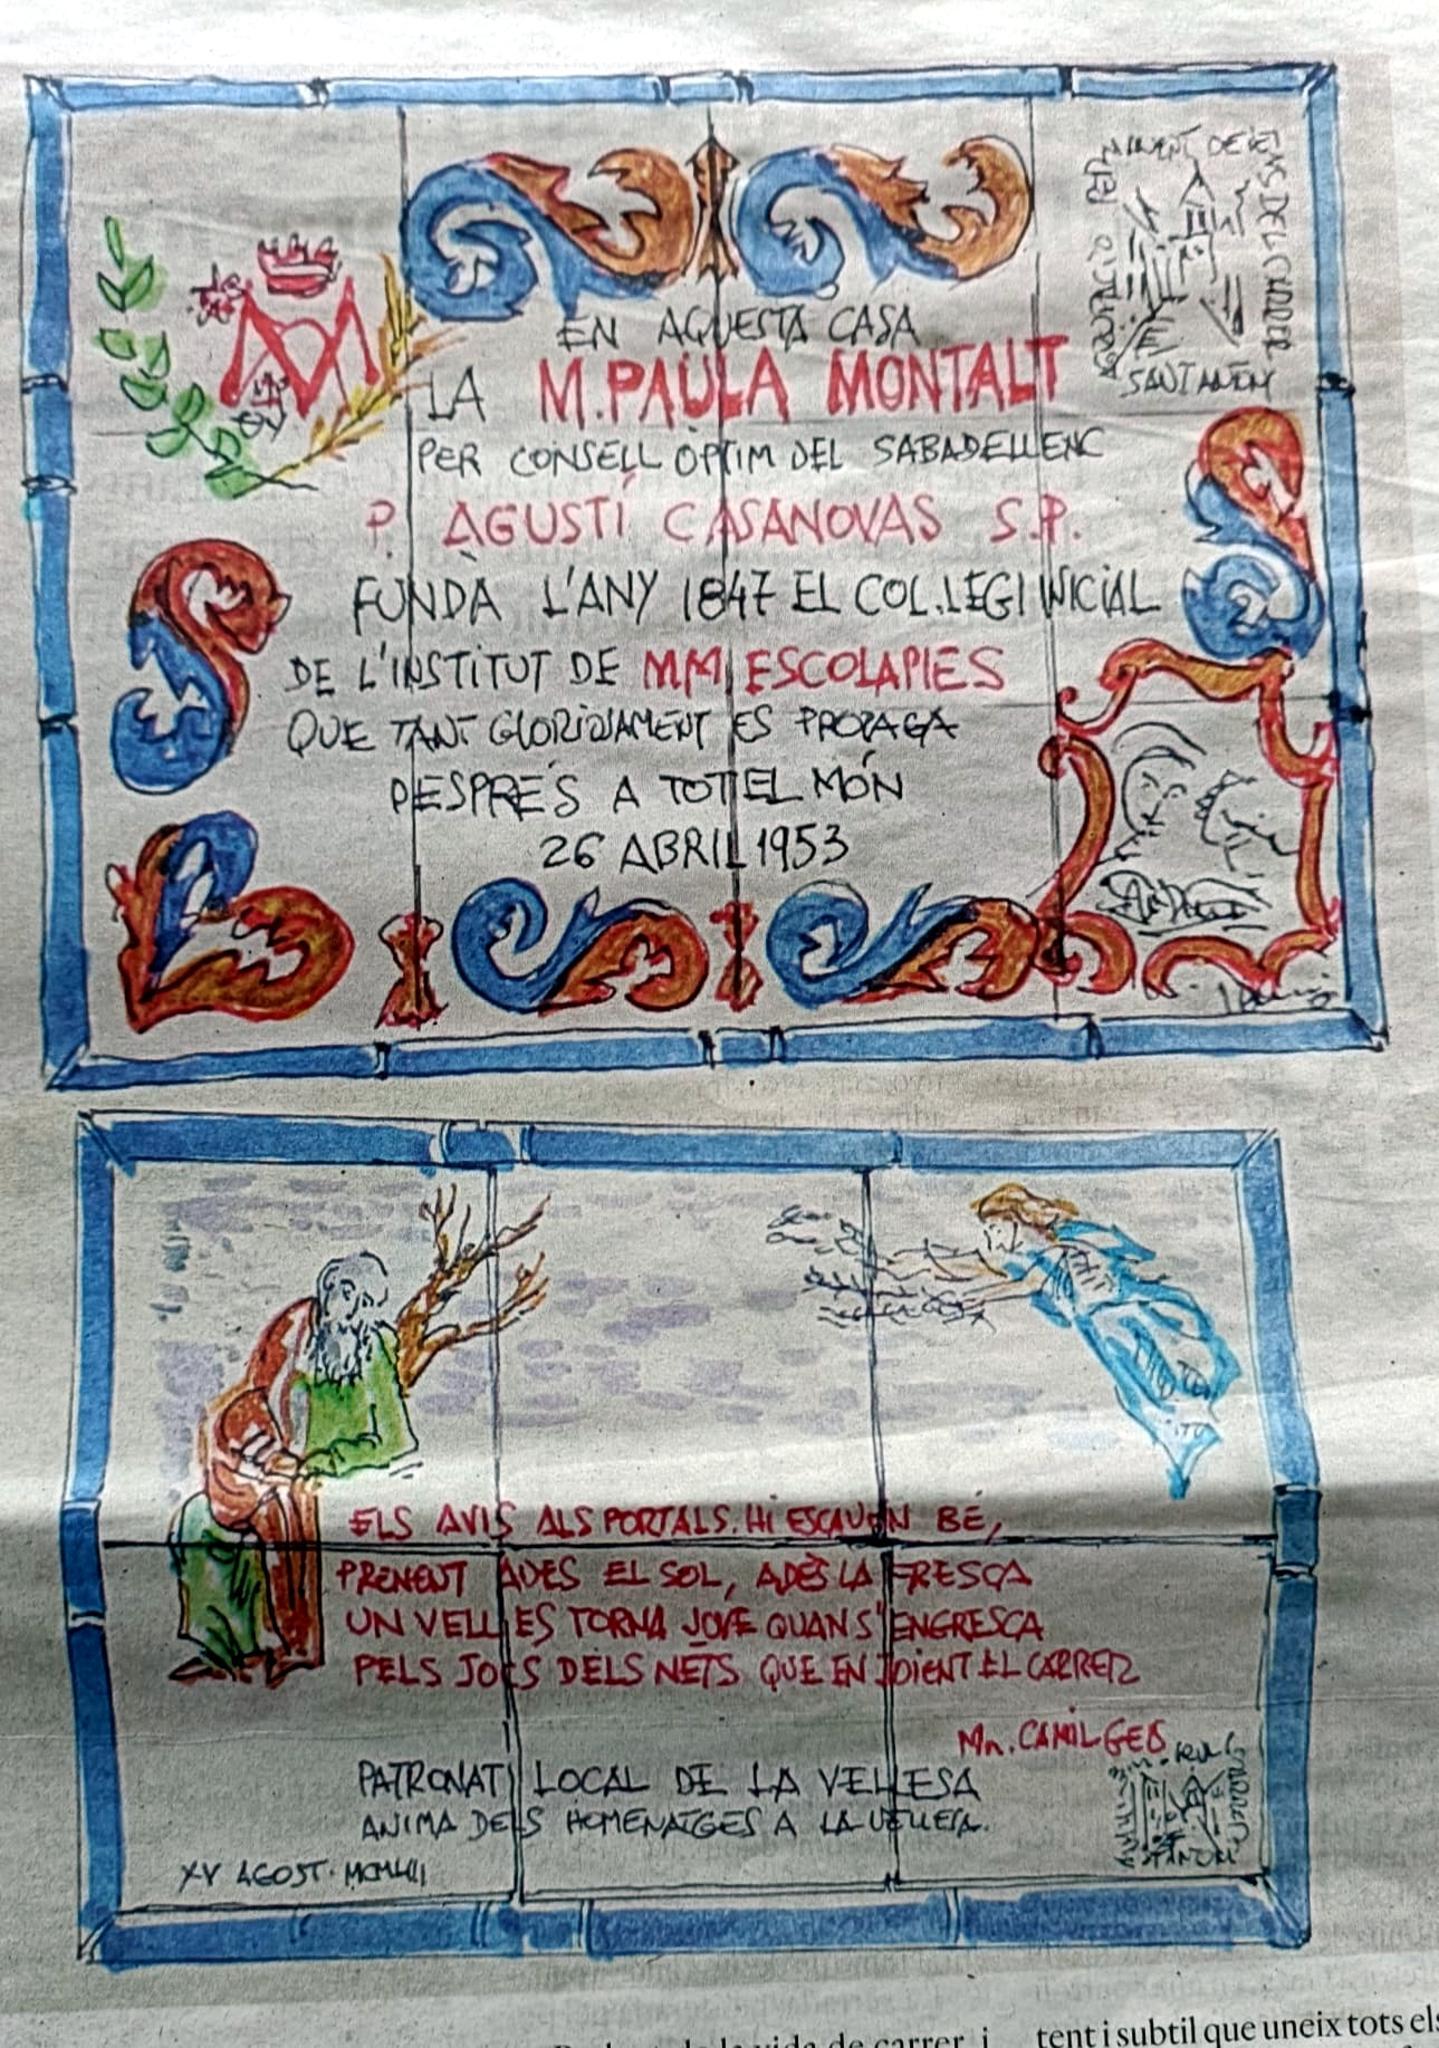 EN AQUESTA CASA
LA M. PAULA MONTALT
PER CONSELL ÒPTIM DEL SABADELLENC
P. AGUSTÍ CASANOVAS S.P.
FUNDÀ L'ANY 1847 EL COL.LEGI INICIAL
DE L'INSTITUT DE MM ESCOLAPIES
QUE TANT GLORIOSAMENT ES PROPAGA
DESPRÉS A TOT EL MÓN
26 ABRIL 1953
SANT ANTONI
ELS AVIS ALS PORTALS. HI ESCAUEN BÉ,
PRENENT ADES EL SOL, ADÈS LA FRESCA
UN VELL ES TORNA JOVE QUAN S'ENGRESCA
PELS JOCS DELS NÉTS QUE EN JOIENT EL CARRER
Mn. CAMIL GEIS
PATRONAT LOCAL DE LA VELLESA
ANIMA DELS HOMENATGES A LA VELLESA.
XV AGOST. MCMLII
de la vida de carrer, i
tent i subtil que uneix tots els